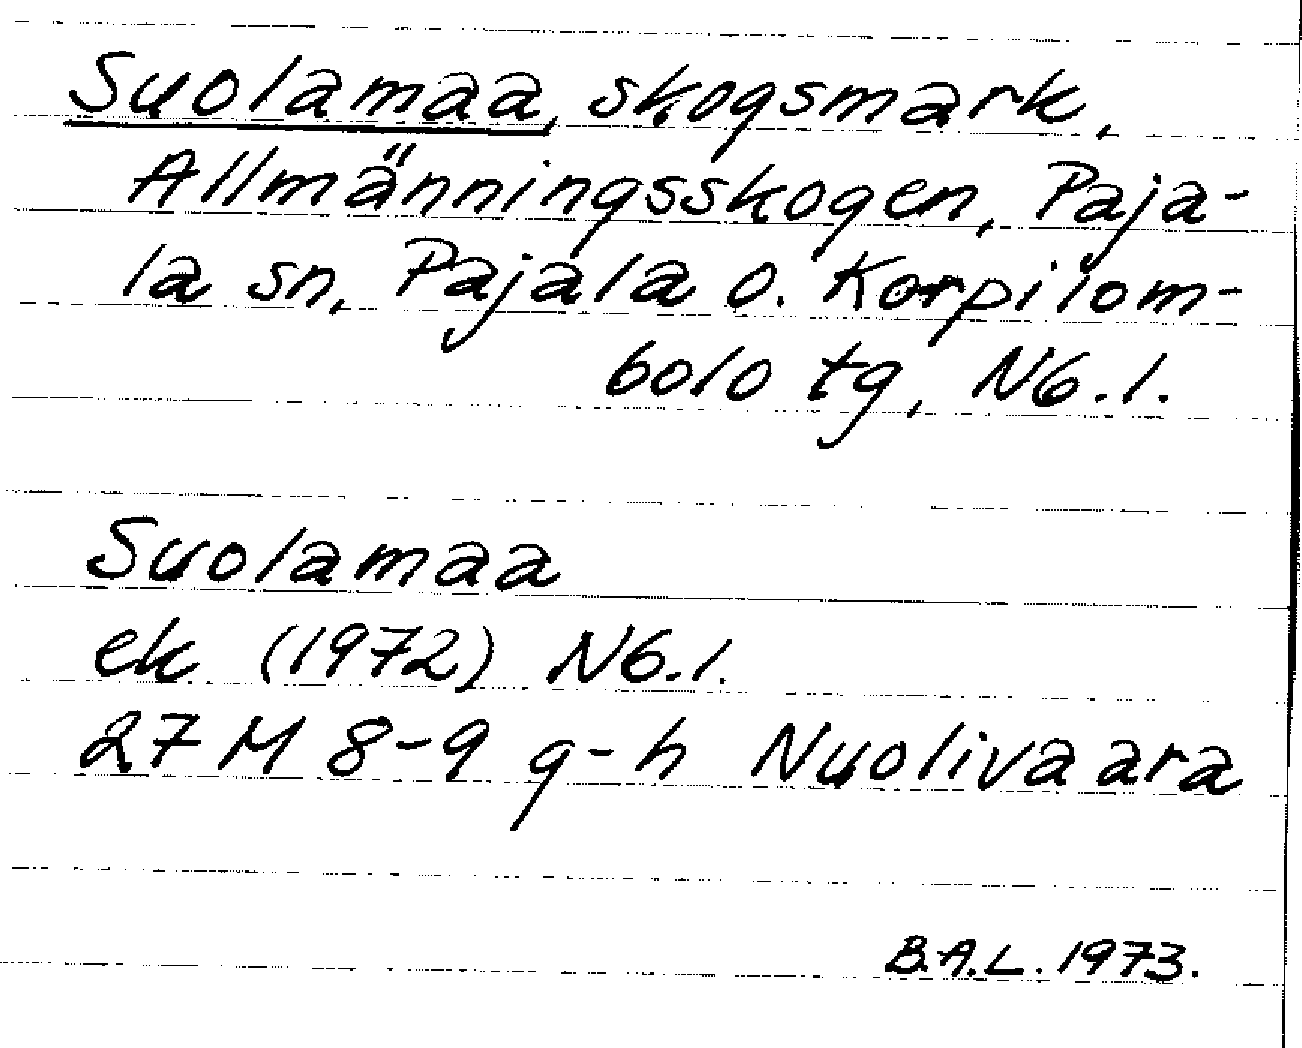 Suolamaa, skogsmark,
Allmänningsskogen, Paja-
la sn, Pajala o. Korpilom-
bolo tg, N6.1.
Suolamaa
ek (1972) N6.1.
27 M 8-9 g-h Nuolivaara
B.A.L. 1973.